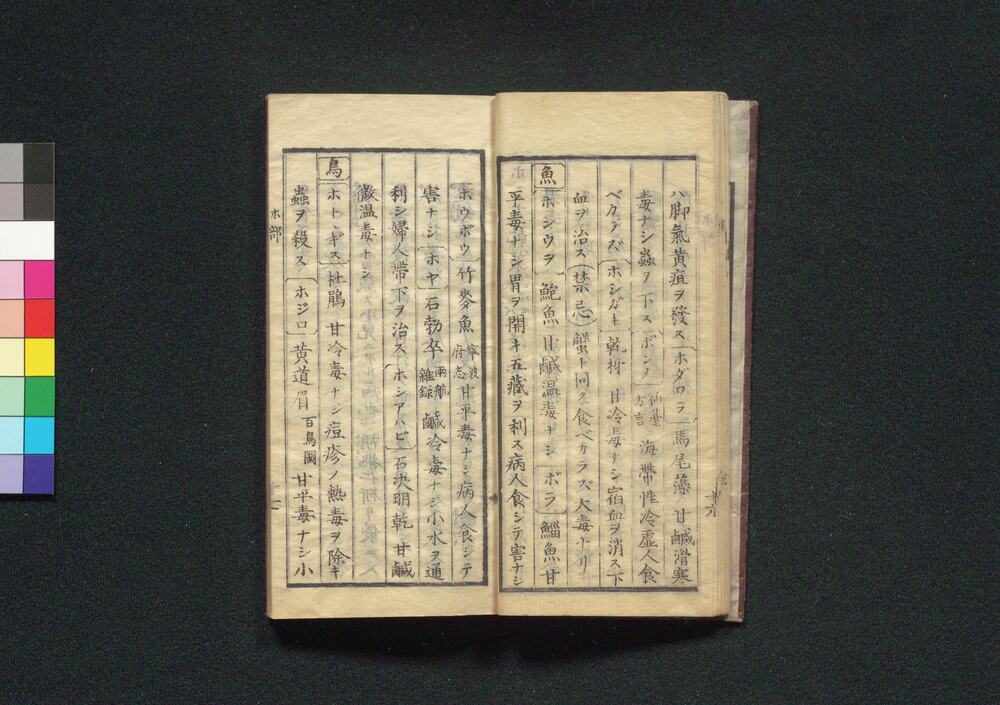 ハ脚氣黄疸ヲ發ス ホダワラ 馬尾藻 甘鹹滑寒
毒ナシ蟲ヲ下ス ボンメ 仙臺方言 海帶性冷虚人食
ベカラズ ホシガキ 乾柹 甘冷毒ナシ宿血ヲ消ス下
血ヲ治ス 禁忌 蟹ト同ク食ベカラズ大毒ナリ
魚 ホシウヲ 鮑魚 甘鹹温毒ナシ ボラ 鯔魚 甘
平毒ナシ胃ヲ開キ五藏ヲ利ス病人食シテ害ナシ
ホウボウ 竹麥魚 寧波府志 甘平毒ナシ病人食シテ
害ナシ ホヤ 石勃卒 兩航雜録 鹹冷毒ナシ小水ヲ通
利シ婦人帶下ヲ治ス ホシアハビ 石决明乾 甘鹹
微温毒ナシ
鳥 ホトヽギス 杜鵑 甘冷毒ナシ痘疹ノ熱毒ヲ除キ
蟲ヲ殺ス ホジロ 黄道眉 百鳥圖 甘平毒ナシ小
ホ部